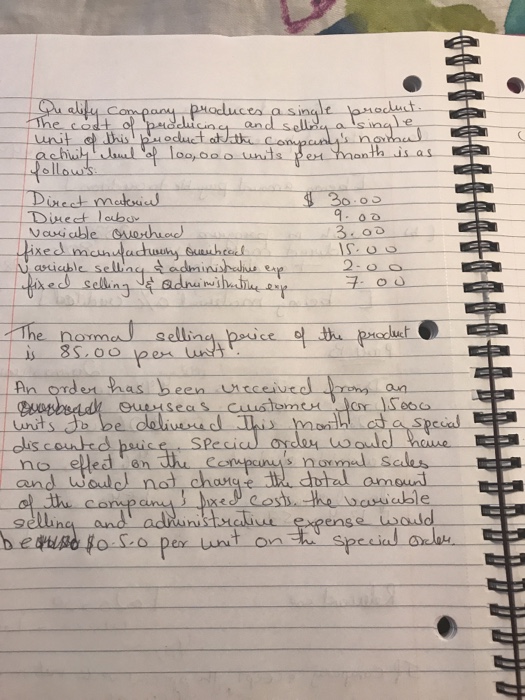 Qualify Company produces a single product.
The cost of producing and selling a single
unit of this product at the company's normal
activity level of 100,000 units per month is as
follows:
Direct material $ 30.00
Direct labor 9.00
Variable overhead 3.00
fixed manufacturing overhead 15.00
Variable selling & administrative exp 2.00
fixed selling & administrative exp 7.00
The normal selling price of the product
is 85.00 per unit.
An order has been received from an
overseas customer for 15000
units to be delivered This month at a special
discounted price. Special order would have
no effect on the company's normal sales
and would not change the total amount
of the company's fixed costs. the variable
selling and administrative expense would
be $0.50 per unit on the special order.